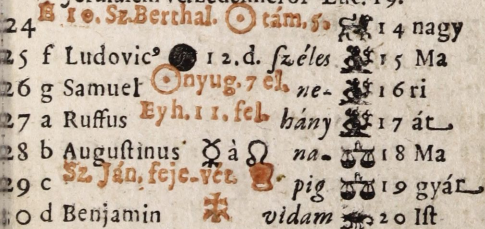 24 E 10. Sz. Berthal. ☉ tám. 5. 14 nagy
25 f Ludovicꝰ 12. d. ſzéles 15 Ma
26 g Samuel ☉nyug. 7 él. ne- 16 ri
27 a Ruffus Eyh. 11. fel. hány 17 át
28 b Auguſtinus ☿ à ☊ na- 18 Ma
29 c Sz. Ján. feje-vét. pig 19 gyár
30 d Benjamin vidam 20 Iſt